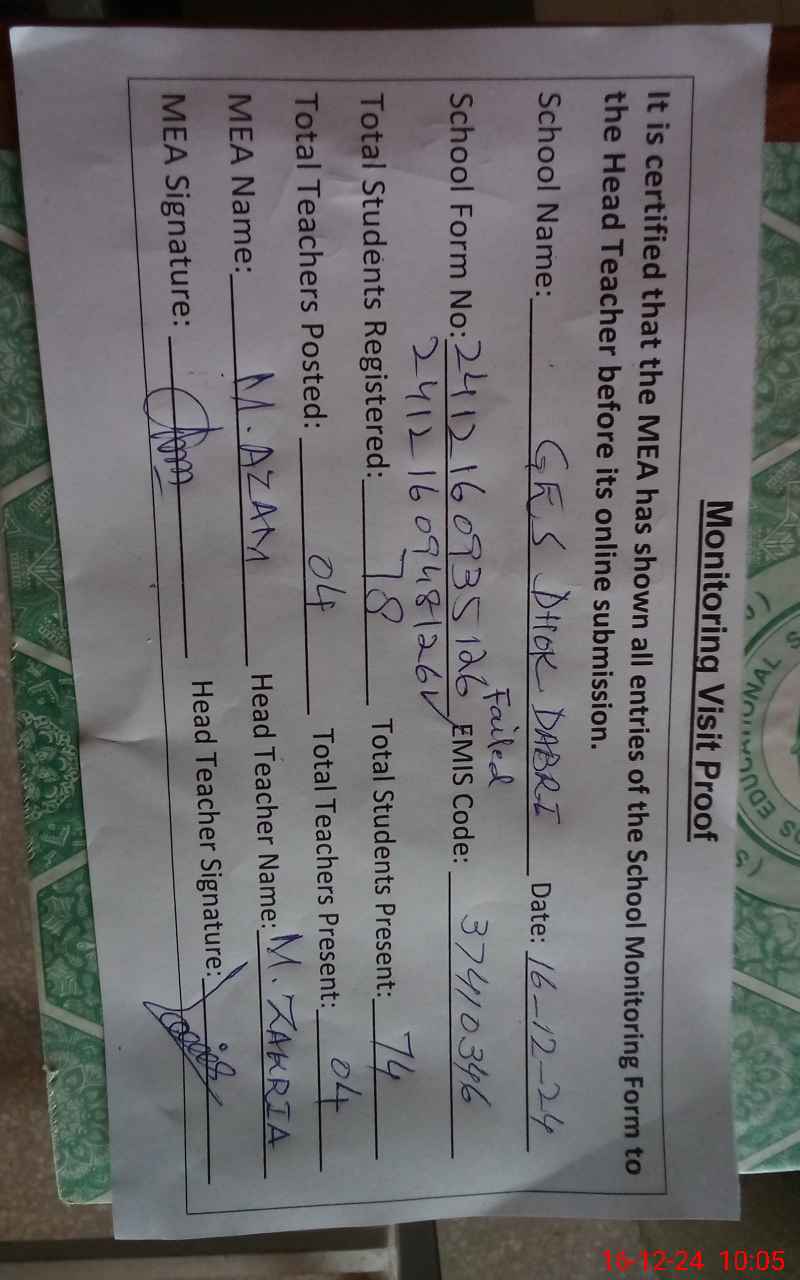 Monitoring Visit Proof
It is certified that the MEA has shown all entries of the School Monitoring Form to
the Head Teacher before its online submission.
School Name: GES DHOK DABRI Date: 16-12-24
Failed
School Form No: 2412160935126 EMIS Code: 37410346
2412160948126✓
Total Students Registered: 78 Total Students Present: 74
Total Teachers Posted: 04 Total Teachers Present: 04
MEA Name: M. AZAM Head Teacher Name: M. ZAKRIA
MEA Signature: Head Teacher Signature:
16-12-24 10:05